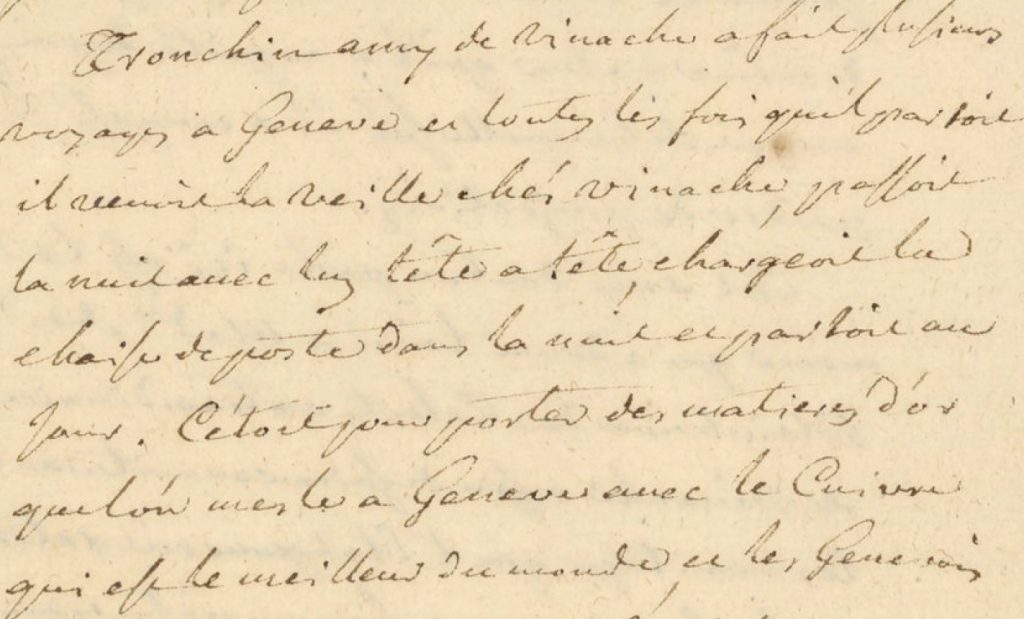 Tronchin amy de vinache a fait plusieurs
voyages a Geneve et toutes les fois qu'il partoit
il venoit la veille chés vinache, passoit
la nuit avec luy tête a tête, chargeoit la
chaise de poste dans la nuit et partoit au
jour. C'étoit pour porter des matieres d'or
que lón mesle a Geneve avec le Cuivre
qui est le meilleur du monde, et les Genevois